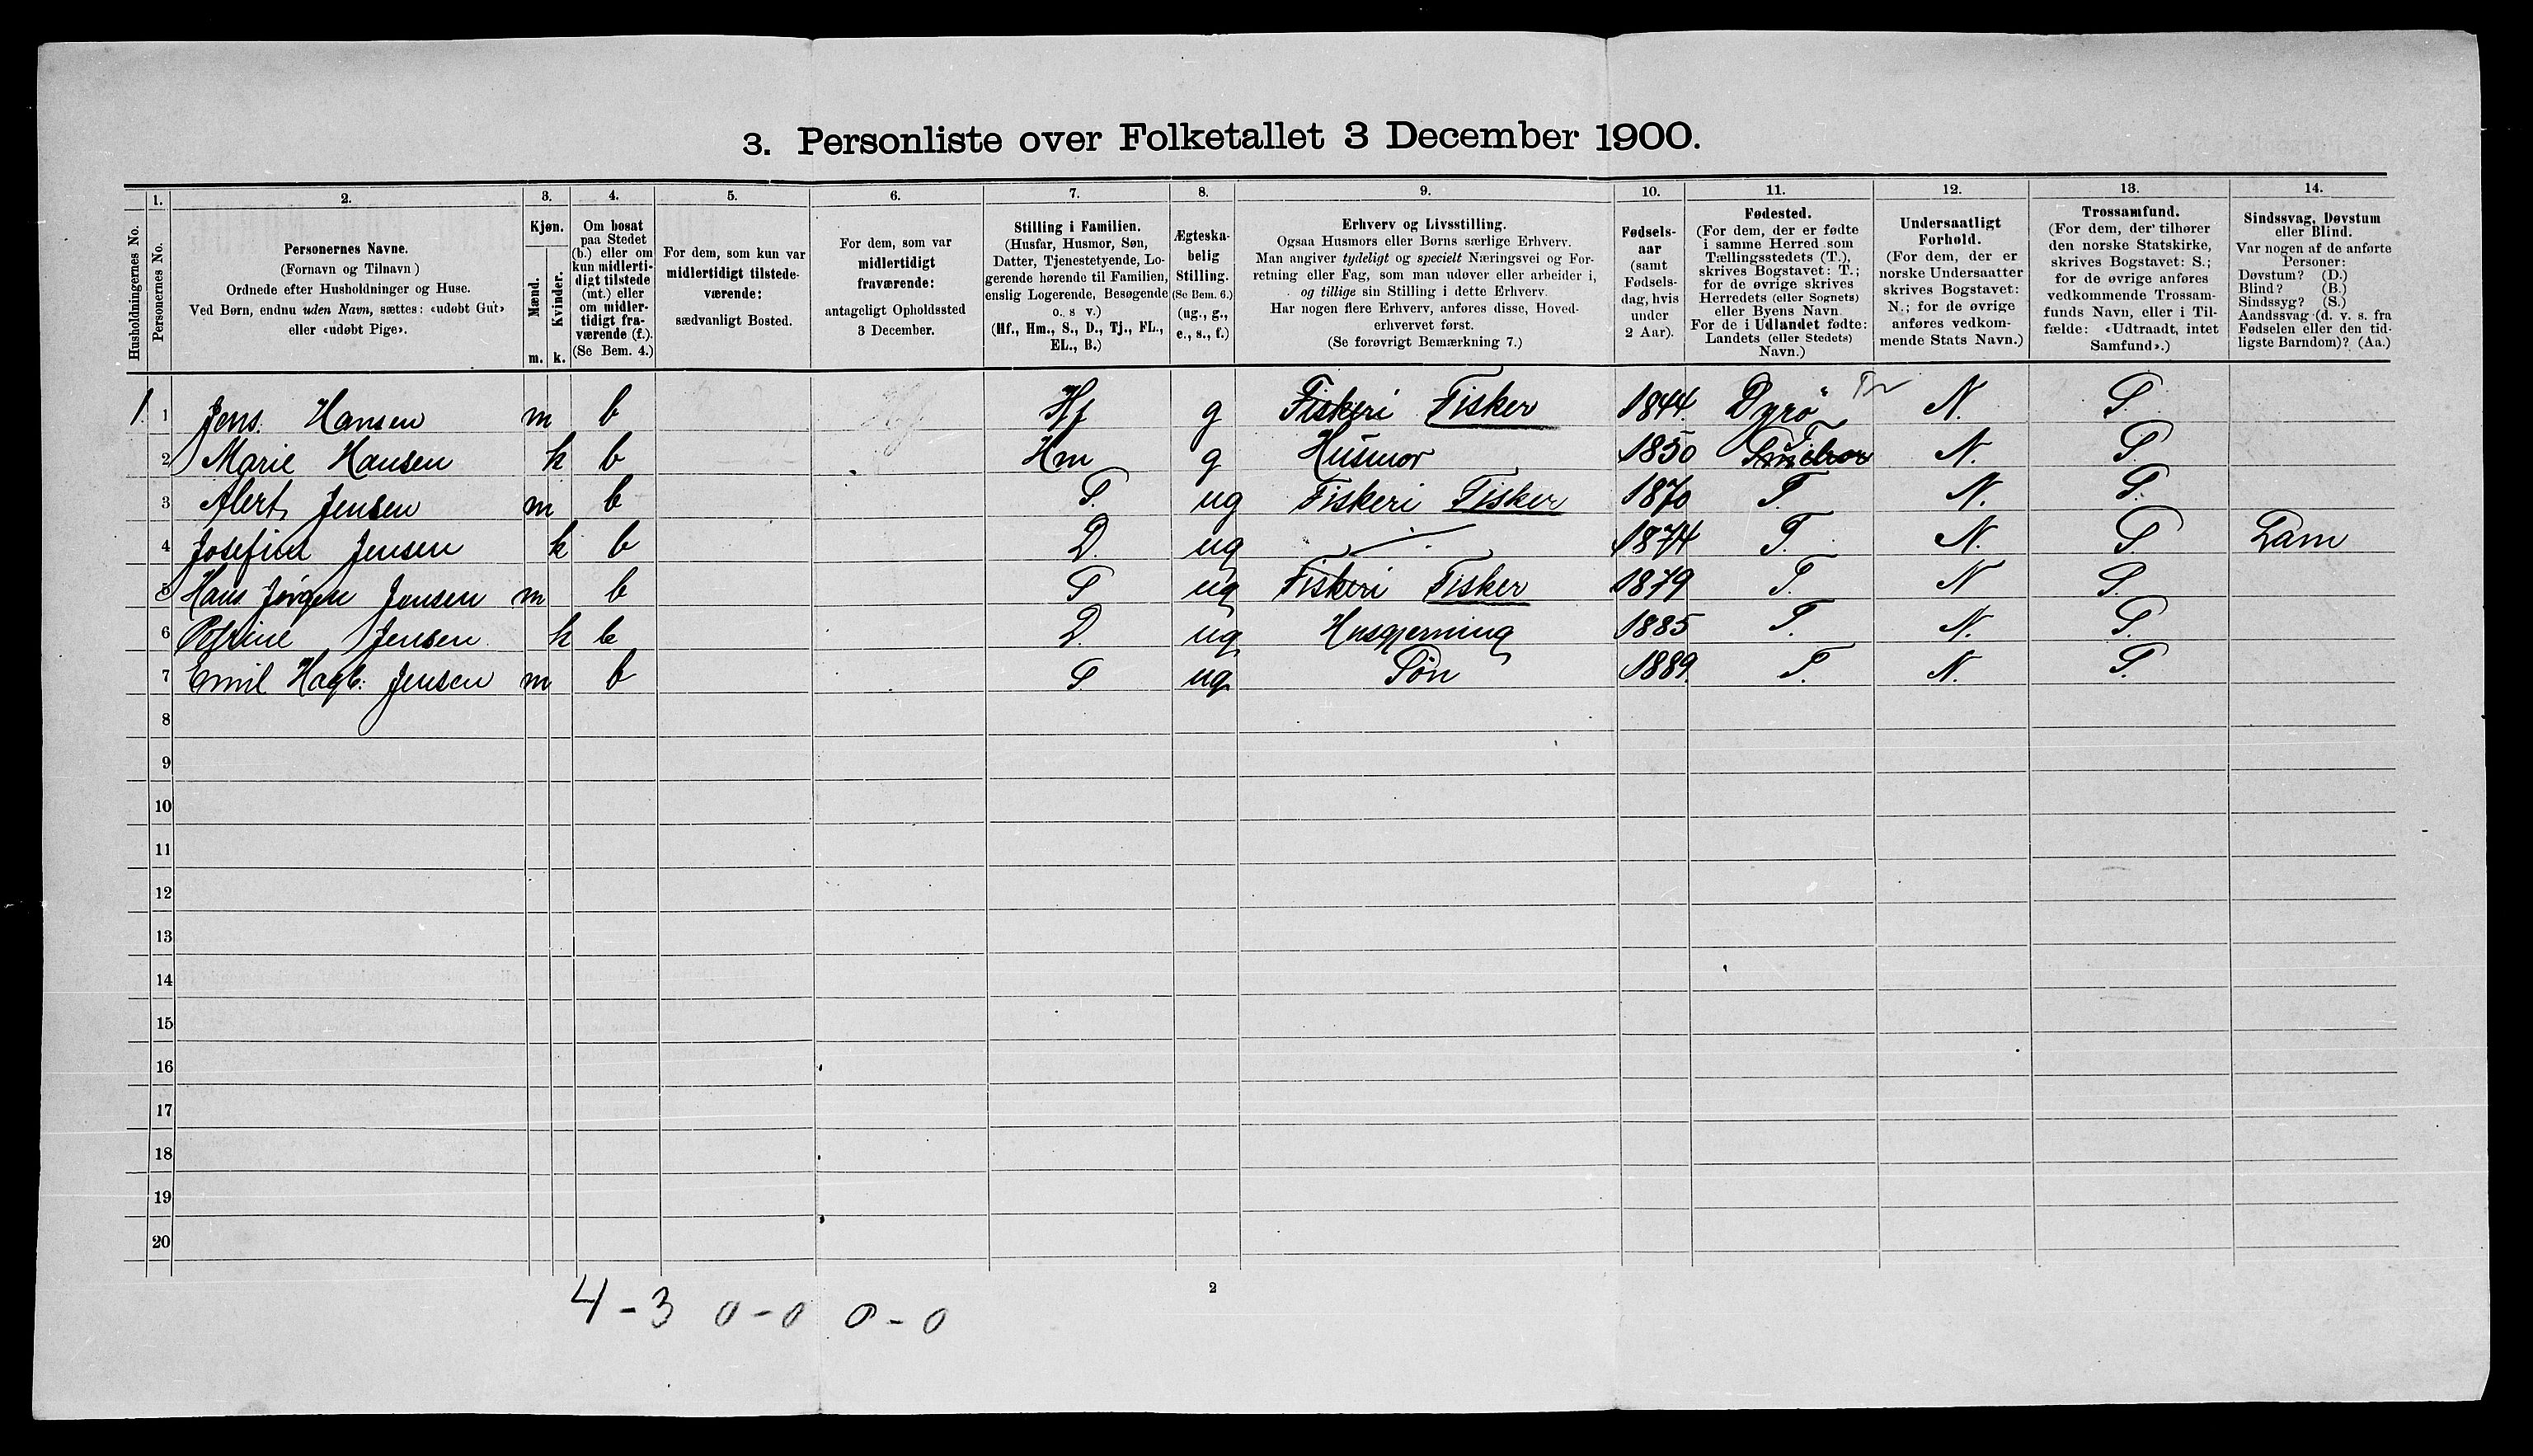 3. Personliste over Folketallet 3 December 1900.
1. 2. 3. 4. 5. 6. 7. 8. 9. 10. 11. 12. 13. 14.
Husholdningernes No.
Personernes No.
Personernes Navne.
(Fornavn og Tilnavn)
Ordnede efter Husholdninger og Huse.
Ved Børn, endnu uden Navn, sættes: «udøbt Gut»
eller «udøbt Pige».
Kjøn.
Mænd.
Kvinder.
m. k.
Om bosat
paa Stedet
(b.) eller om
kun midlerti-
digt tilstede
(mt.) eller
om midler-
tidigt fra-
værende (f.).
(Se Bem. 4.)
For dem, som kun var
midlertidigt tilstede-
værende:
sædvanligt Bosted.
For dem, som var
midlertidigt
fraværende:
antageligt Opholdssted
3 December.
Stilling i Familien.
(Husfar, Husmor, Søn,
Datter, Tjenestetyende, Lo-
gerende hørende til Familien,
enslig Logerende, Besøgende
o. s v.)
(Hf., Hm., S., D., Tj., FL.,
EL., B.)
Ægteska-
belig
Stilling.
(Se Bem. 6.)
(ug., g.,
e., s., f.)
Erhverv og Livsstilling.
Ogsaa Husmors eller Børns særlige Erhverv.
Man angiver tydeligt og specielt Næringsvei og For-
retning eller Fag, som man udøver eller arbeider i,
og tillige sin Stilling i dette Erhverv.
Har nogen flere Erhverv, anføres disse, Hoved-
erhvervet først.
(Se forøvrigt Bemærkning 7.)
Fødsels-
aar
(samt
Fødsels-
dag, hvis
under
2 Aar).
Fødested.
(For dem, der er fødte
i samme Herred som
Tællingsstedets (T.),
skrives Bogstavet: T.;
for de øvrige skrives
Herredets (eller Sognets)
eller Byens Navn.
For de i Udlandet fødte:
Landets (eller Stedets)
Navn.)
Undersaatligt
Forhold.
(For dem, der er
norske Undersaatter
skrives Bogstavet:
N.; for de øvrige
anføres vedkom-
mende Stats Navn.)
Trossamfund.
(For dem, der tilhører
den norske Statskirke,
skrives Bogstavet: S.;
for de øvrige anføres
vedkommende Trossam-
funds Navn, eller i Til-
fælde: «Udtraadt, intet
Samfund».)
Sindssvag, Døvstum
eller Blind.
Var nogen af de anførte
Personer:
Døvstum? (D.)
Blind? (B.)
Sindssyg? (S.)
Aandssvag (d. v. s. fra
Fødselen eller den tid-
ligste Barndom)? (Aa.)
1. 1 Jens. Hansen m b Hf g Fiskeri Fisker 1844 Dyrö Tr N. S.
2 Marie Hansen k b Hm g Husmor 1850 T N. S.
3 Alert Jensen m b S. ug Fiskeri Fisker 1870 T. N. S.
4 Josefine Jensen k b D. ug 1874 T. N. S. Lam
5 Hans Jørgen Jensen m b S ug Fiskeri Fisker 1879 T. N S.
6 Jensen k b D. ug Husgjerning 1885 T. N. S.
7 Emil Hagb: Jensen m b S ug. Søn 1889. T. N. S.
8
9
10
11
12
13
14
15
16
17
18
19
20
2
4-3 0-0 0-0